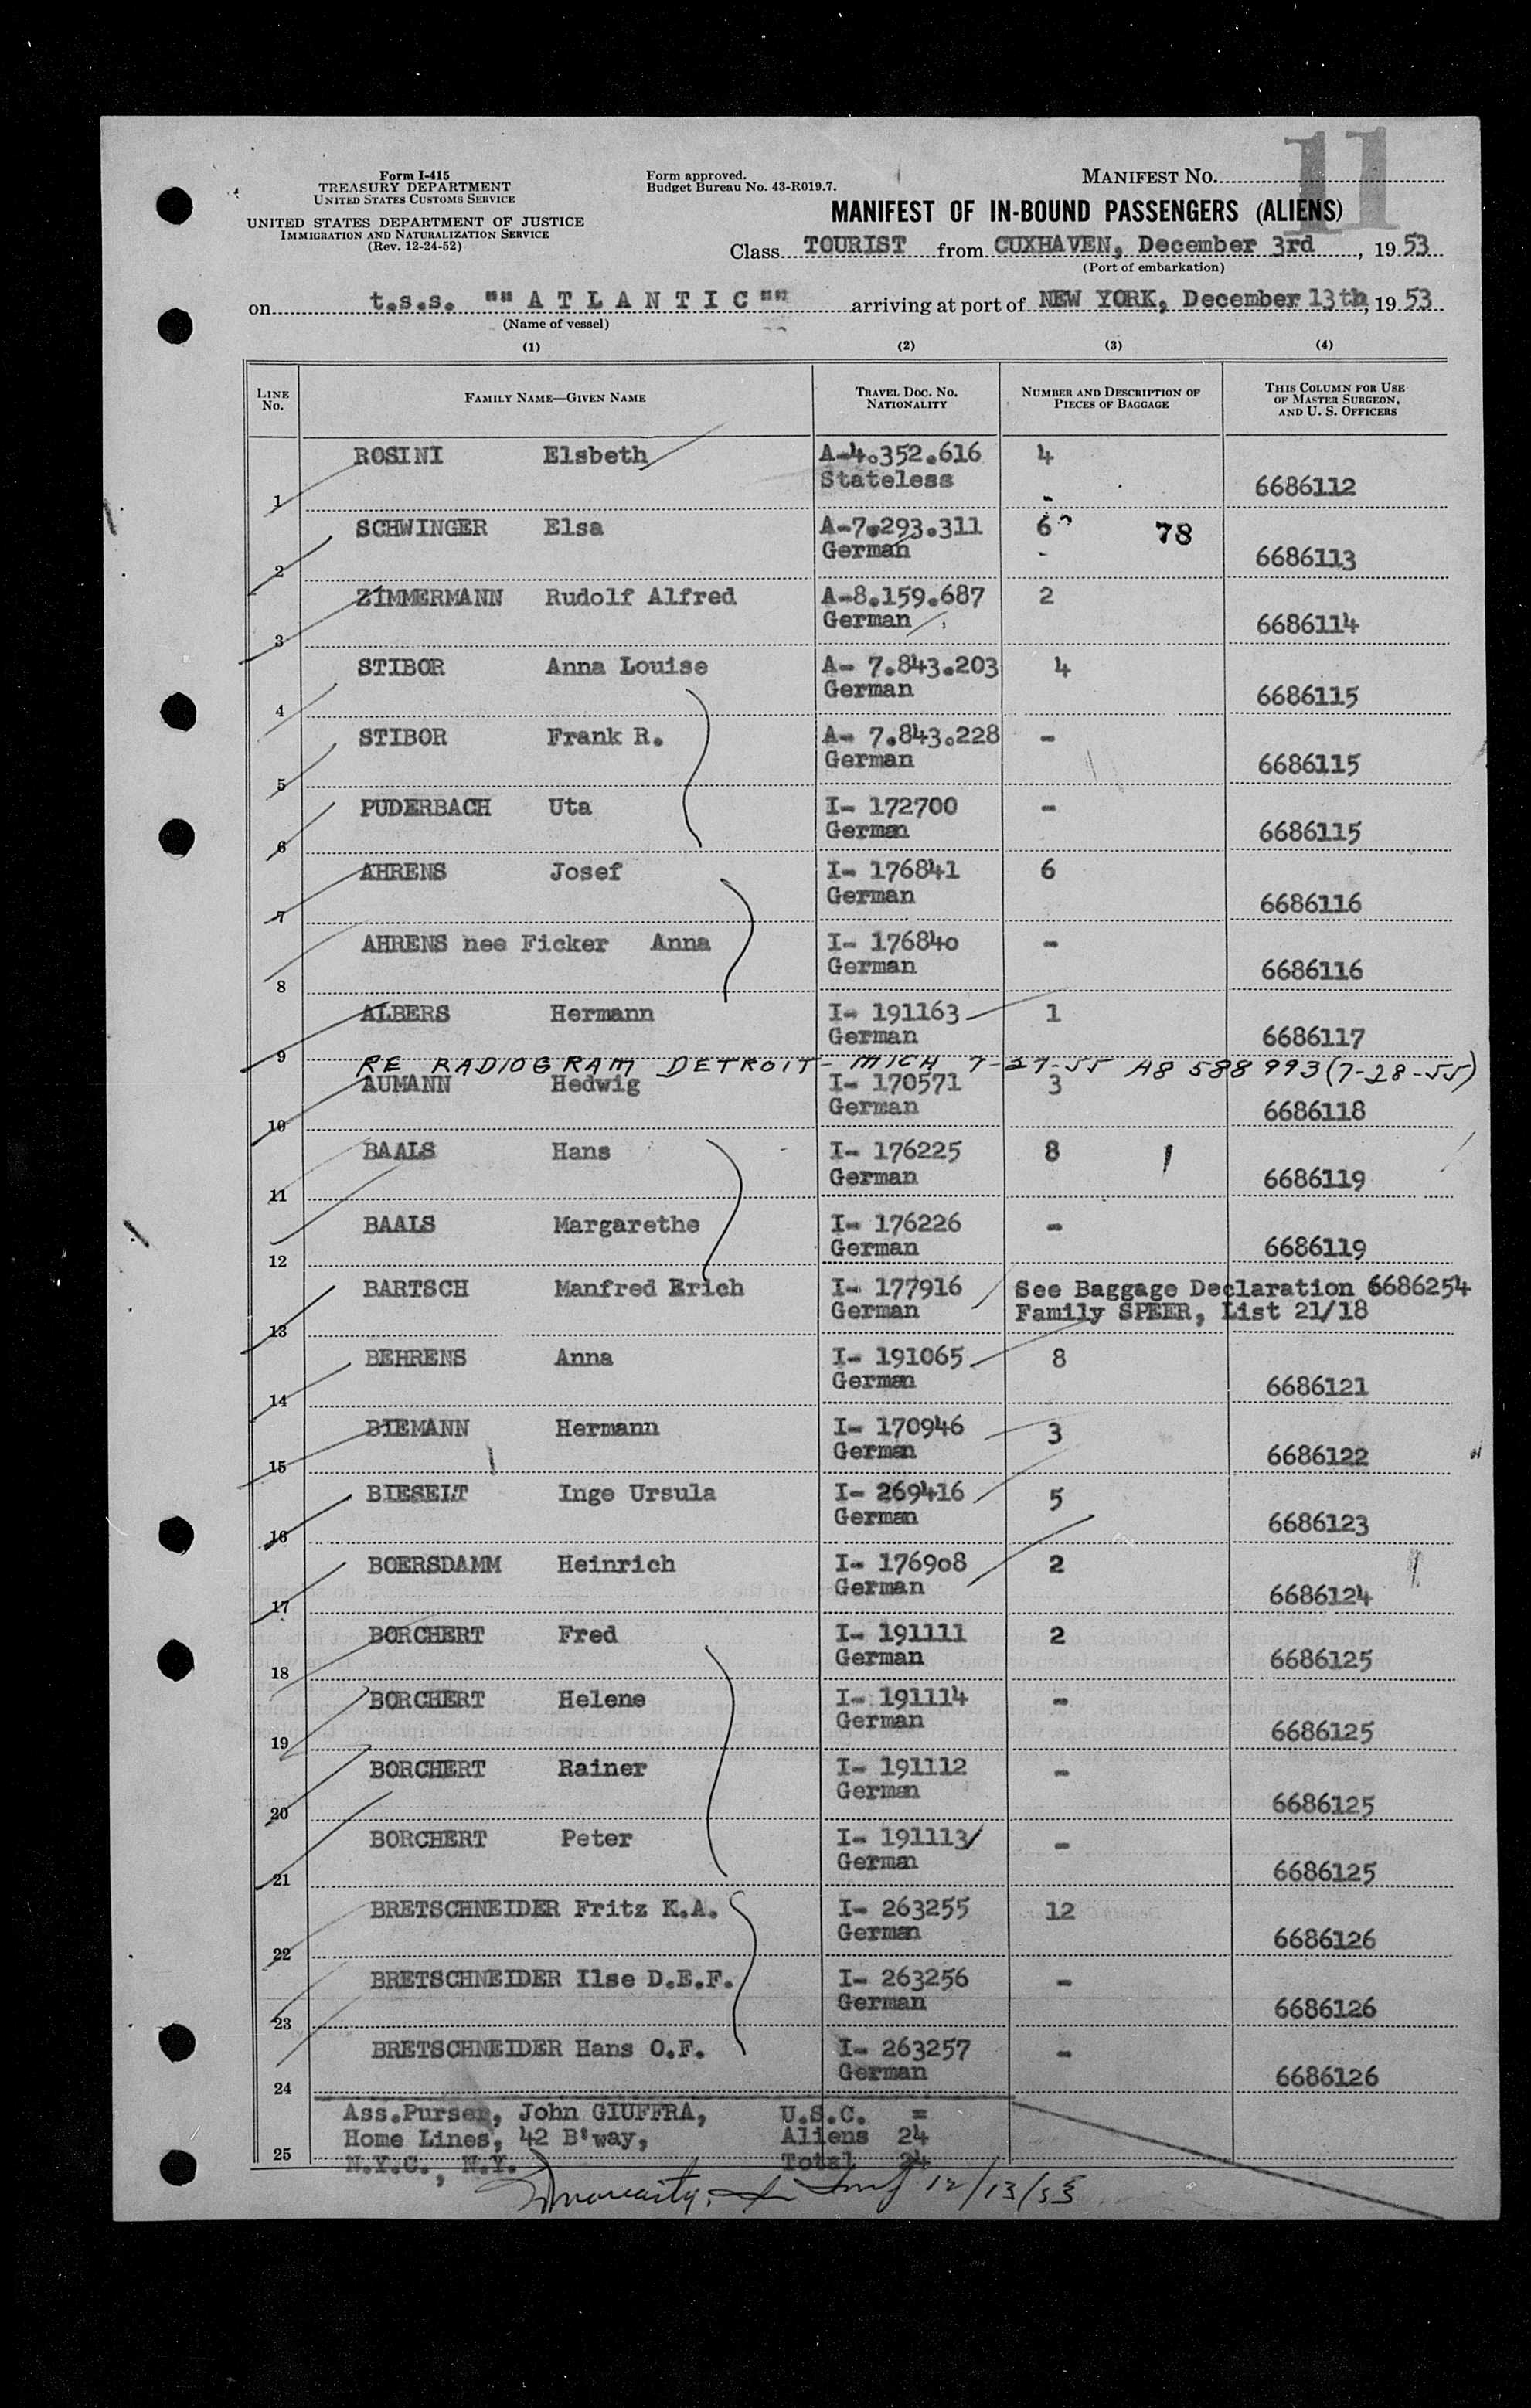 11
Form I-415
TREASURY DEPARTMENT
UNITED STATES CUSTOMS SERVICE
UNITED STATES DEPARTMENT OF JUSTICE
IMMIGRATION AND NATURALIZATION SERVICE
(Rev. 12-24-52)
Form approved.
Budget Bureau No. 43-R019.7.
MANIFEST NO.
MANIFEST OF IN-BOUND PASSENGERS (ALIENS)
Class TOURIST from CUXHAVEN, December 3rd, 1953
(Port of embarkation)
on t.s.s. "" A T L A N T I C "" arriving at port of NEW YORK, December 13th, 1953
(Name of vessel)
(1) (2) (3) (4)
LINE NO. FAMILY NAME—GIVEN NAME TRAVEL DOC. NO. NATIONALITY NUMBER AND DESCRIPTION OF PIECES OF BAGGAGE THIS COLUMN FOR USE OF MASTER SURGEON, AND U. S. OFFICERS
1 ROSINI Elsbeth A-4.352.616 Stateless 4 - 6686112
2 SCHWINGER Elsa A-7.293.311 German 6 - 78 6686113
3 ZIMMERMANN Rudolf Alfred A-8.159.687 German 2 6686114
4 STIBOR Anna Louise A- 7.843.203 German 4 6686115
5 STIBOR Frank R. A- 7.843.228 German - 6686115
6 PUDERBACH Uta I- 172700 German - 6686115
7 AHRENS Josef I- 176841 German 6 6686116
8 AHRENS nee Ficker Anna I- 176840 German - 6686116
9 ALBERS Hermann I- 191163 German 1 6686117
RE RADIOGRAM DETROIT- MICH 7-27-55 A8 588 993 (7-28-55)
10 AUMANN Hedwig I- 170571 German 3 6686118
11 BAALS Hans I- 176225 German 8 1 6686119
12 BAALS Margarethe I- 176226 German - 6686119
13 BARTSCH Manfred Erich I- 177916 German See Baggage Declaration 6686254 Family SPEER, List 21/18
14 BEHRENS Anna I- 191065 German 8 6686121
15 BIEMANN Hermann I- 170946 German 3 6686122
16 BIESELT Inge Ursula I- 269416 German 5 6686123
17 BOERSDAMM Heinrich I- 176908 German 2 6686124
18 BORCHERT Fred I- 191111 German 2 6686125
19 BORCHERT Helene I- 191114 German - 6686125
20 BORCHERT Rainer I- 191112 German - 6686125
21 BORCHERT Peter I- 191113 German - 6686125
22 BRETSCHNEIDER Fritz K.A. I- 263255 German 12 6686126
23 BRETSCHNEIDER Ilse D.E.F. I- 263256 German - 6686126
24 BRETSCHNEIDER Hans O.F. I- 263257 German - 6686126
Ass.Purser, John GIUFFRA, U.S.C. =
Home Lines, 42 B'way, Aliens 24
25 N.Y.C., N.Y. Total 24
12/13/53